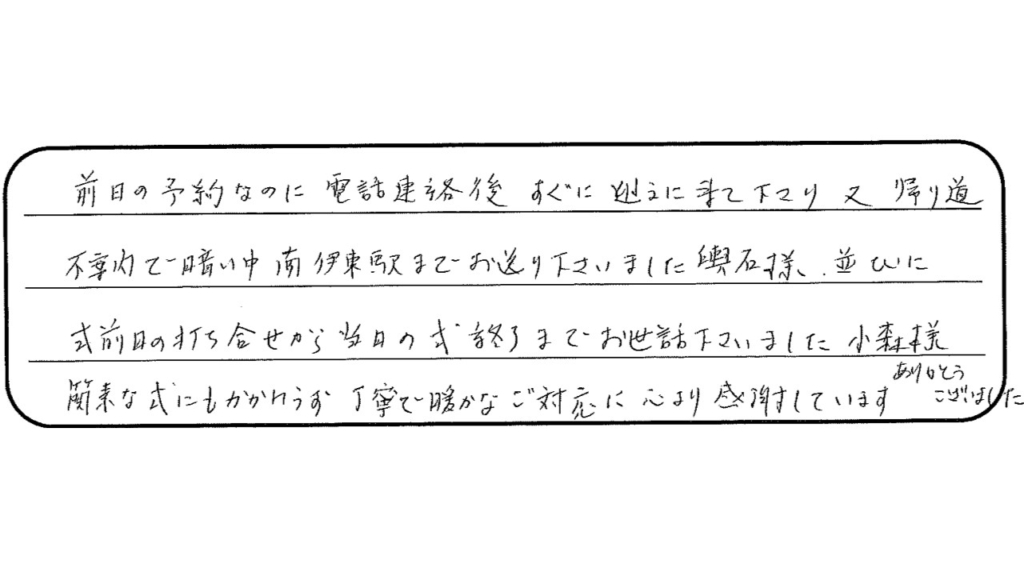 前日の予約なのに 電話連絡後 すぐに 迎えに来て下さり 又 帰り道
不案内で暗い中 南伊東駅までお送り下さいました輿石様、並びに
式前日の打ち合せから当日の式終了までお世話下さいました 小森様
簡素な式にもかかわらず 丁寧で暖かなご対応に 心より感謝しています
ありがとう
ございました